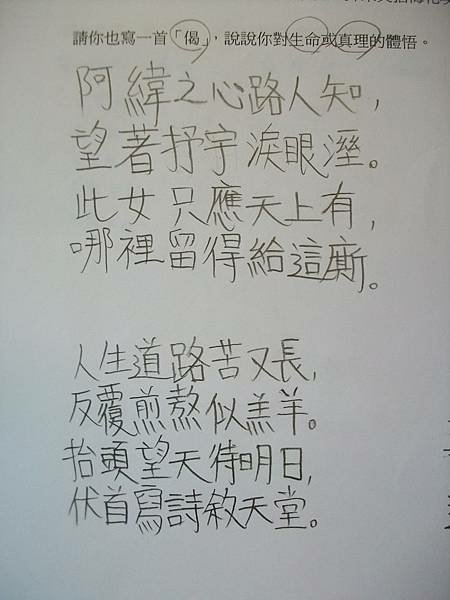 請你也寫一首「偈」，說說你對生命或真理的體悟。
阿緯之心路人知，
望著抒宇淚眼溼。
此女只應天上有，
哪裡留得給這廝。
人生道路苦又長，
反覆煎熬似羔羊。
抬頭望天待明日，
伏首寫詩敘天堂。